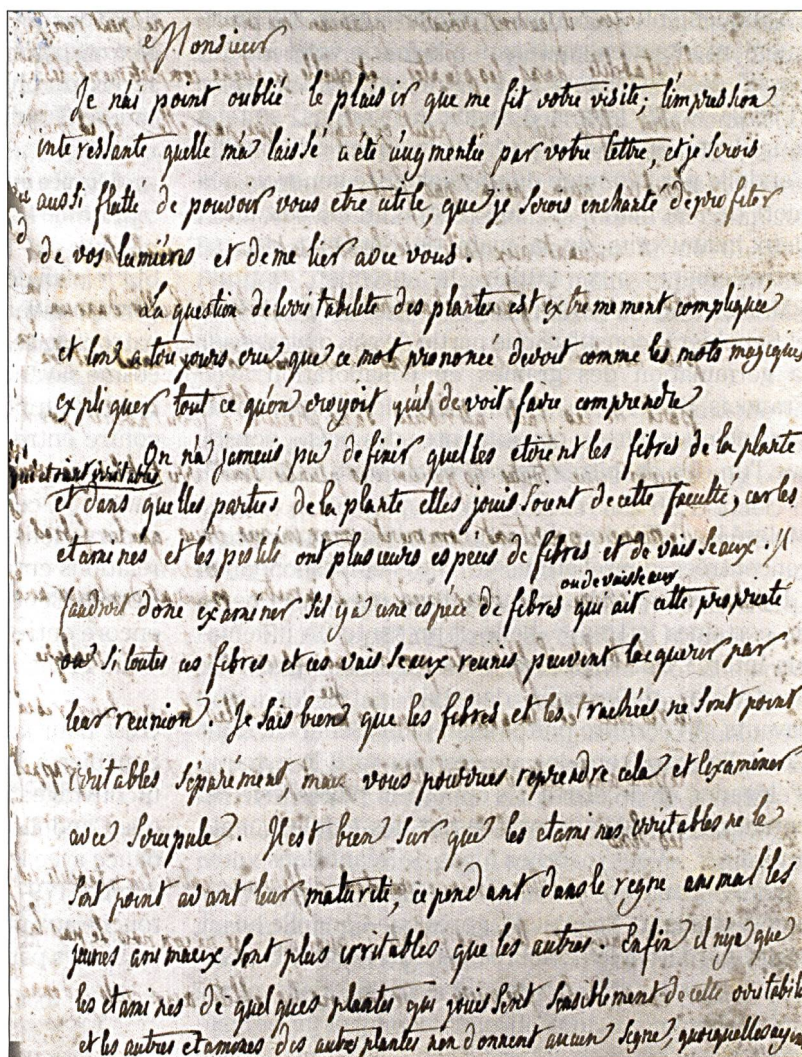 Monsieur
Je n'ai point oublié le plaisir que me fit votre visite; l'impression
interessante quelle m'a laissé a été augmentée par votre lettre, et je serois
aussi flatté de pouvoir vous etre utile, que je serois enchanté de profiter
de vos lumières et de me lier avec vous.
La question de lirritabilité des plantes est extremement compliquée
et lon a toujours cru que ce mot prononcé devoit comme les mots magiques
expliquer tout ce qu'on croyoit qu'il devoit faire comprendre
On n'a jamais pu definir quelles etoient les fibres de la plante
qui etoient irritables
et dans quelles parties de la plante elles jouissoient de cette faculté; car les
etamines et les pistils ont plusieurs espéces de fibres et de vaisseaux. Il
ou de vaisseaux
faudroit donc examiner s'il y a une espéce de fibres qui ait cette proprieté
ou si toutes ces fibres et ces vaisseaux reunis peuvent lacquerir par
leur reunion. Je sais bien que les fibres et les trachées ne sont point
irritables séparément, mais vous pourrues reprendre cela et lexaminer
avec scrupule. Il est bien sur que les etamines irritables ne le
sont point avant leur maturité, cependant dans le regne animal les
jeunes animaux sont plus irritables que les autres. Enfin il n'y a que
les etamines de quelques plantes qui jouissent sensiblement de cette irritabilité
et les autres etamines des autres plantes n'en donnent aucun signe, quoiquelles